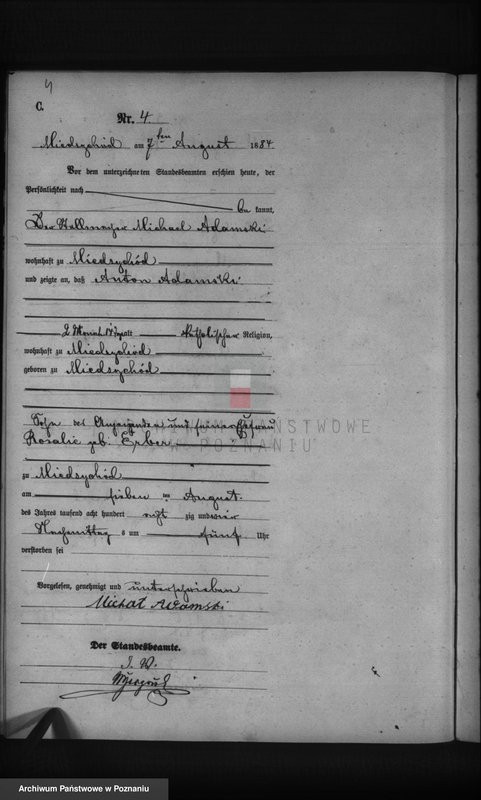 4
C.
Nr. 4
Miedzychód am 7ten August 1884
Vor dem unterzeichneten Standesbeamten erschien heute, der
Persönlichkeit nach
be kannt,
Der Michael Adamski
wohnhaft zu Miedzychód
und zeigte an, daß Anton Adamski
2 Monat 14 Tage alt katholischer Religion,
wohnhaft zu Miedzychód
geboren zu Miedzychód
ARCHIWUM PAŃSTWOWE
W POZNANIU
Sohn des Anzeigenden und seiner Ehefrau
Rosalie geb. Erber
zu Miedzychód
am sieben ten August
des Jahres tausend acht hundert acht zig und vier
Nachmittag s um fünf Uhr
verstorben sei
Vorgelesen, genehmigt und unterschrieben
Michał Adamski
Der Standesbeamte.
J. V.
Archiwum Państwowe w Poznaniu